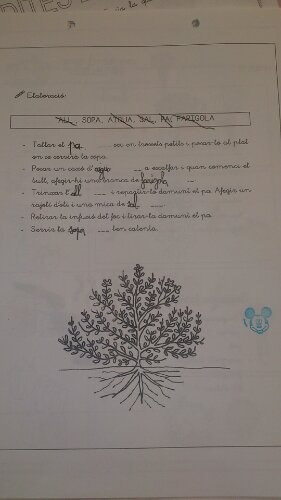 Elaboració:
ALL, SOPA, AIGUA, SAL, PA, FARIGOLA
- Tallar el pa sec en trossets petits i posar-lo al plat
on se servirà la sopa.
- Posar un cassó d'aigua a escalfar i quan comenci el
bull, afegir-hi una branca de farigola.
- Trinxar l'all i repartir-lo damunt el pa. Afegir un
rajolí d'oli i una mica de sal.
- Retirar la infusió del foc i tirar-la damunt el pa.
- Servir la sopa ben calenta.